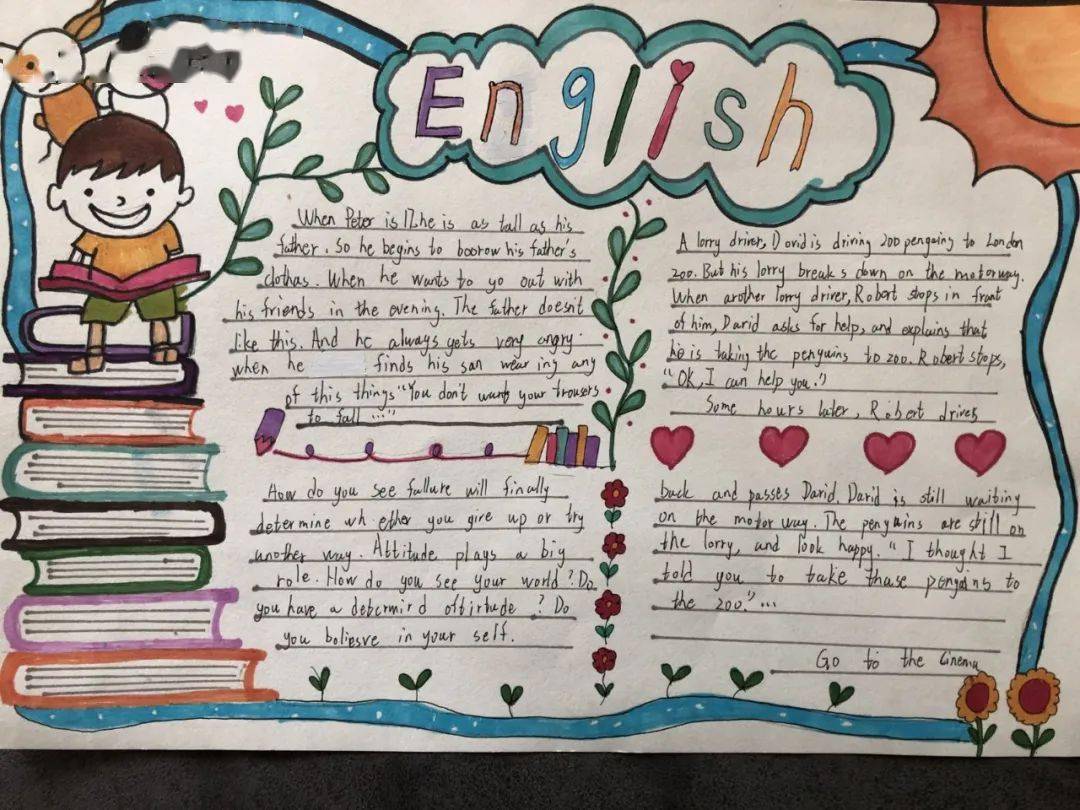 English
When Peter is 17.he is as tall as his
father. So he begins to boorow his father's
clothas. When he wants to yo out with
his friends in the evening. The father doesnt
like this. And he always gets very angry.
when he finds his san wearing any
of this things "You don't wants your trousers
to fall ..."
How do you see fallure will finally
determine wh ether you give up or try
another way. Attitude plays a big
role. How do you see your world? Do
you have a determird oftirtude ? Do
you bolievve in your self.
A lorry driver, David is driving 200 penguing to London
zoo. But his lorry break s down on the motorway.
When another lorry driver, Robert stops in front
of him, David asks for help, and explains that
he is taking the penguins to zoo. Robert stops,
"OK, I can help you."
Some hours later, Robert drives
back and passes David. David is still waiting
on the motor way. The penguins are still on
the lorry, and look happy. "I thought I
told you to take thase pengains to
the zoo." ...
Go to the Cinema